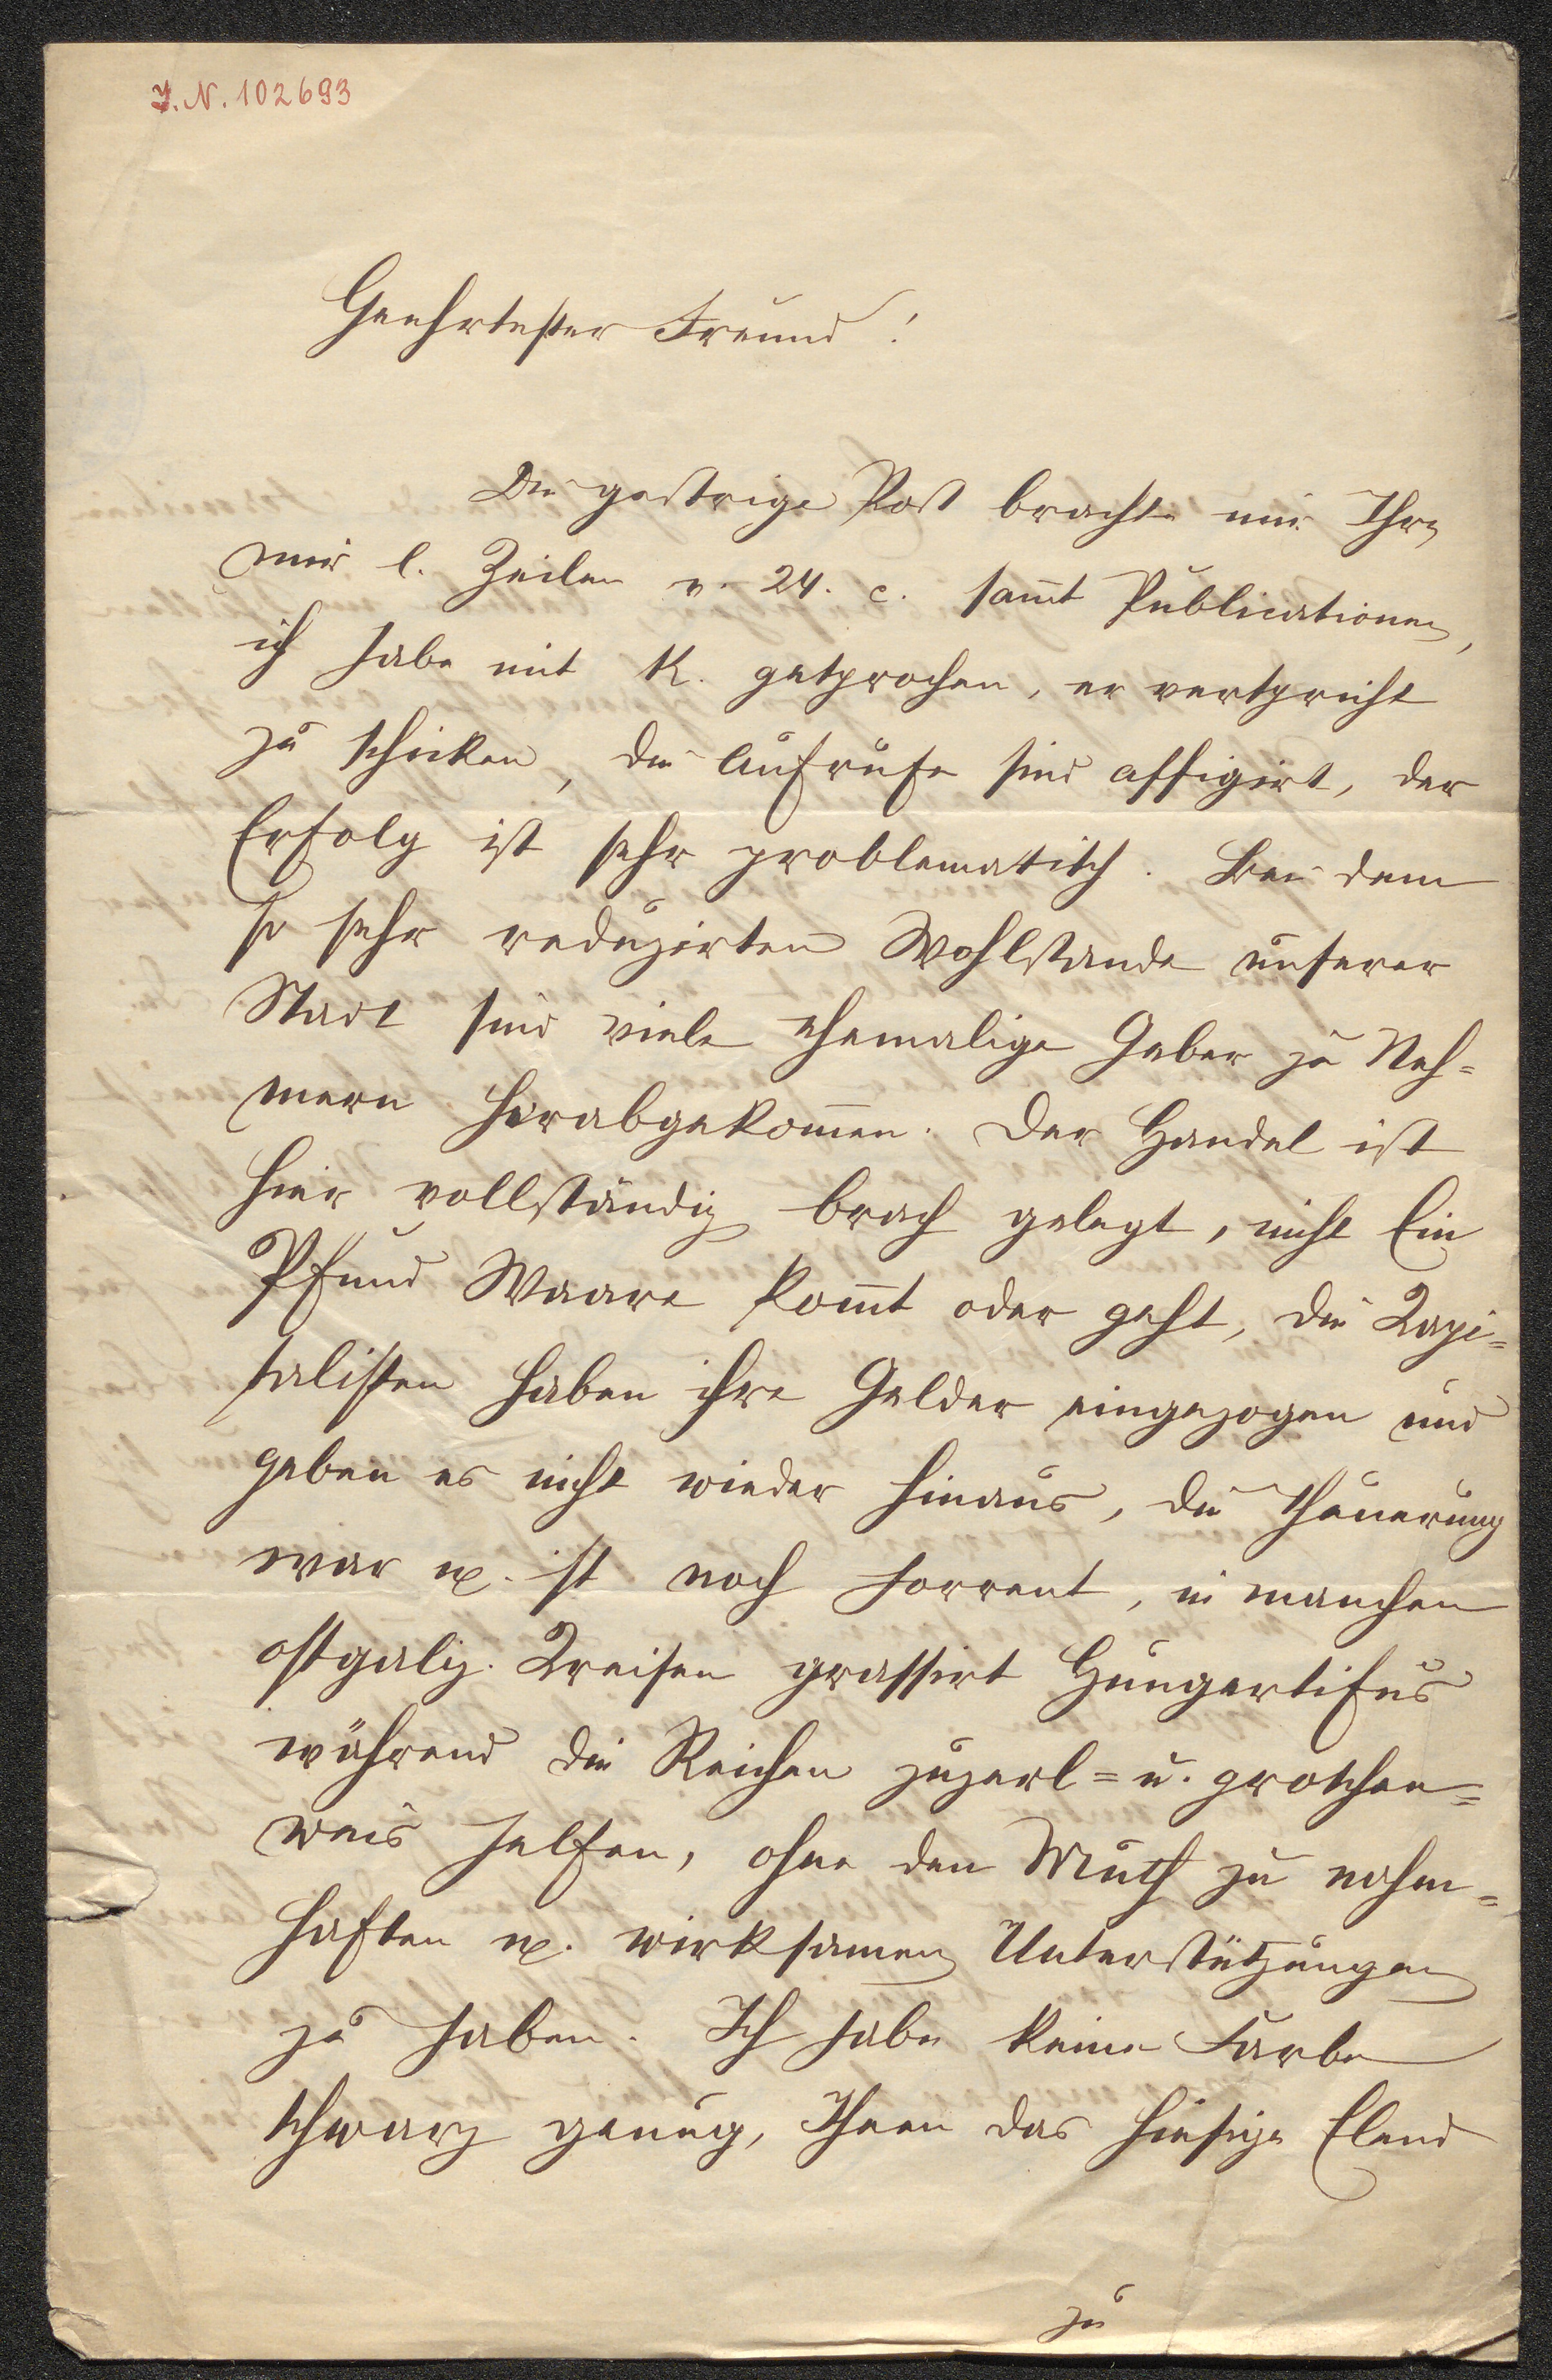 I.N. 102693
Geehrtester Freund!
Die gestrige Post brachte mir Ihre
mir l. Zeilen v. 24. c. sam̅t Publicationen,
ich habe mit K. gesprochen, er verspricht
zu schicken, die Aufrufe sind affigirt, der
Erfolg ist sehr problematisch. Bei dem
so sehr reduzirten Wohlstande unserer
Stadt sind viele ehemalige Geber zu Neh=
mern herabgekom̅en. Der Handel ist
hier vollständig brach gelegt, nicht Ein
Pfund Waare kom̅t oder geht, die Kapi=
talisten haben ihre Gelder eingezogen und
geben es nicht wieder hinaus, die Theuerung
war u. ist noch horrent, in manchen
ostgaliz. Kreisen grassirt Hungertifus
während die Reichen zuzerl= u. groschen=
weis helfen, ohne den Muth zu nahm=
haften u. wirksamen Unterstützungen
zu haben. Ich habe keine Farbe
schwarz genug, Ihnen das hiesige Elend
zu